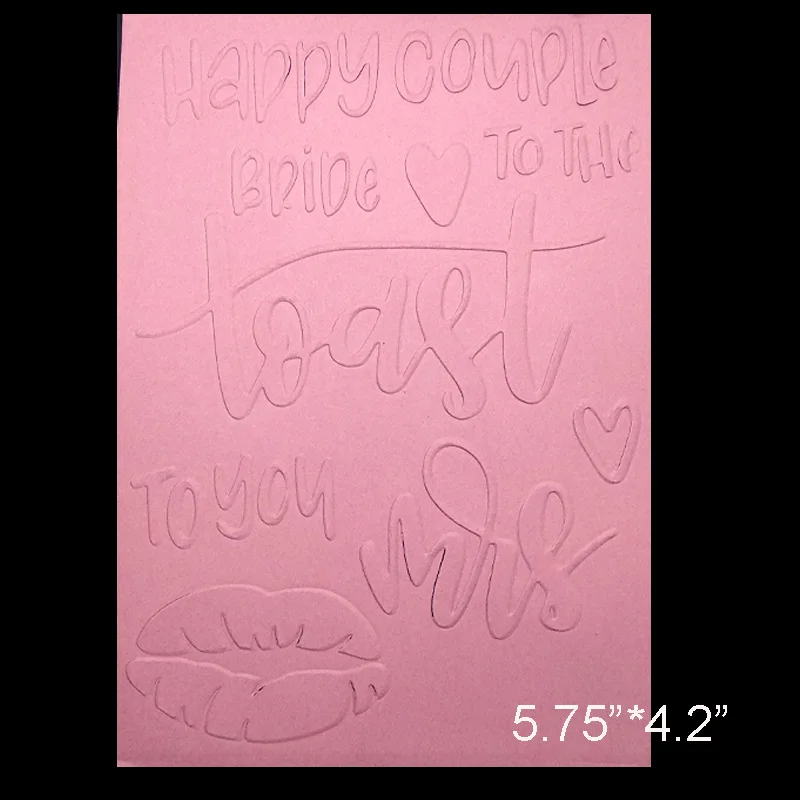 Happy Couple
BRiDe TO THe
toast
TO you
mrs
5.75”*4.2”